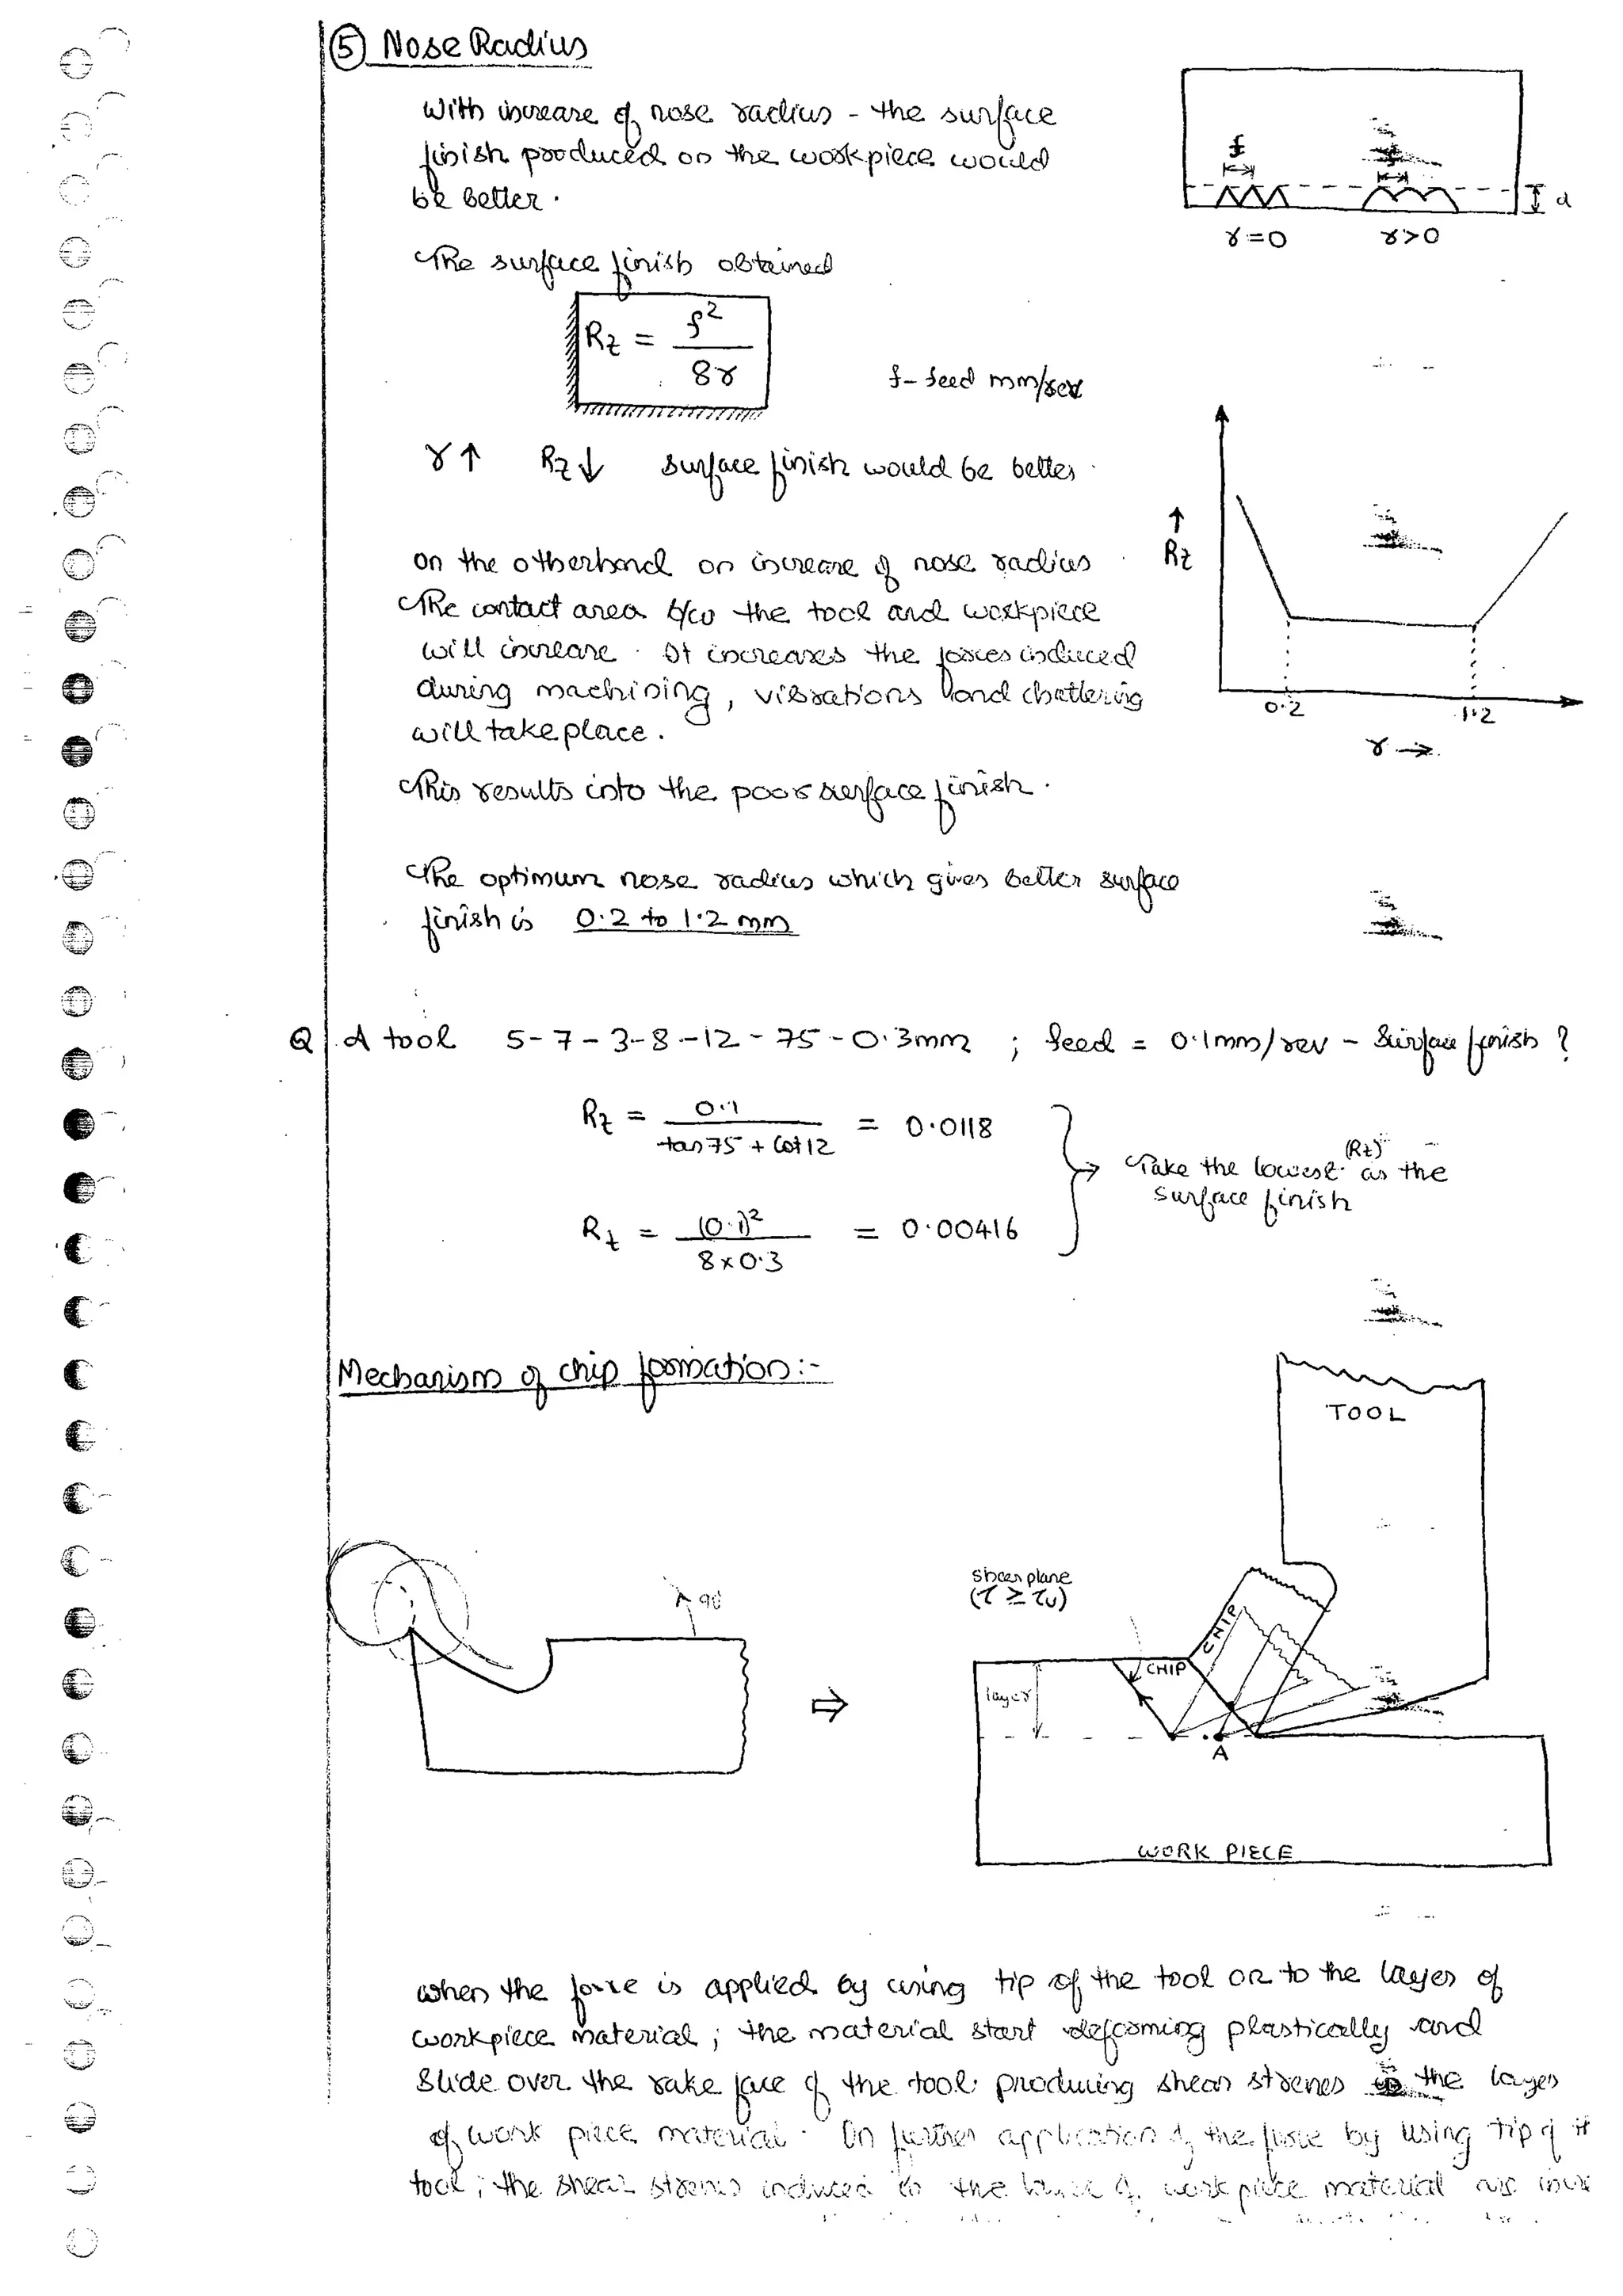 ⑤ Nose Radius
With increase of nose radius - the surface
finish produced on the workpiece would
be better.
f
f
d
r=0
r>0
The surface finish obtained
Rz = f²
8r
f- feed mm/rev
r↑ Rz↓ surface finish would be better.
on the otherhand on increase of nose radius
The contact area b/w the tool and workpiece
will increase. It increases the forces induced
during machining, vibrations and chattering
will take place.
This results into the poor surface finish.
↑
Rz
0.2
1.2
r →
The optimum nose radius which gives better surface
finish is 0.2 to 1.2 mm
Q. A tool 5-7-3-8-12-75-0.3mm ; feed = 0.1mm/rev - Surface finish ?
Rz = 0.1 = 0.0118
tan 75 + cot 12
Rz = (0.1)² = 0.00416
8×0.3
(Rz)
Take the lowest as the
surface finish
Mechanism of chip formation:-
TOOL
shear plane
(τ ≥ τu)
CHIP
CHIP
layer
⇒
A
WORK PIECE
when the force is applied by using tip of the tool on to the layer of
workpiece material; the material start deforming plastically and
slide over the rake face of the tool producing shear stresses in the layer
of work piece material. On further application of the force by using tip of
tool; the shear stresses induced in the layer of work piece material